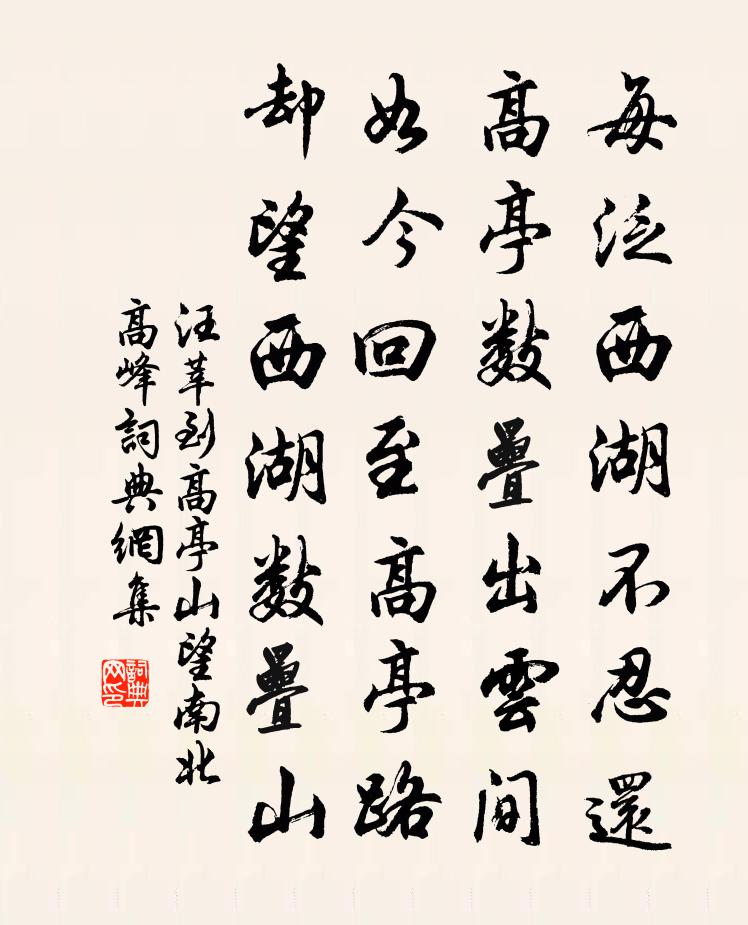 每泛西湖不忍還
高亭數疊出雲間
如今回至高亭路
却望西湖數疊山
汪莘到高亭山望南北
高峰詞典網集
詞典网印